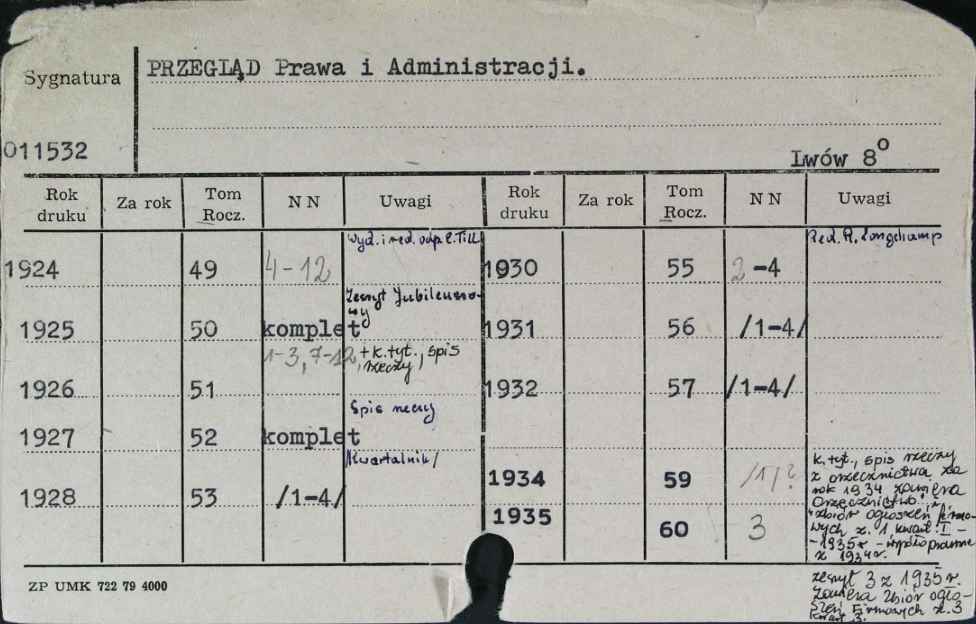 Sygnatura
PRZEGLĄD Prawa i Administracji.
011532
Lwów 8°
Rok druku Za rok Tom Rocz. NN Uwagi Rok druku Za rok Tom Rocz. NN Uwagi
Wyd. i red. odp. E. Till
1924 49 4-12
Zeszyt Jubileuszo-
wy
1925 50 komplet
1-3, 7-12 + k. tyt., spis
rzeczy
1926 51
Spis rzeczy
1927 52 komplet
Kwartalnik/
1928 53 /1-4/
Red. R. Longchamp
1930 55 2-4
1931 56 /1-4/
1932 57 /1-4/
1934 59 /1/?
k. tyt., spis rzeczy
z orzecznictwa za
rok 1934 zawiera
Orzecznictwo i
"zbiór ogłoszeń firmo-
wych z. 1 kwart. I -
-1935r. - współoprawne
z 1934r.
1935 60 3
zeszyt 3 z 1935r.
zawiera Zbiór ogło-
szeń Firmowych z. 3
kwart 3.
ZP UMK 722 79 4000